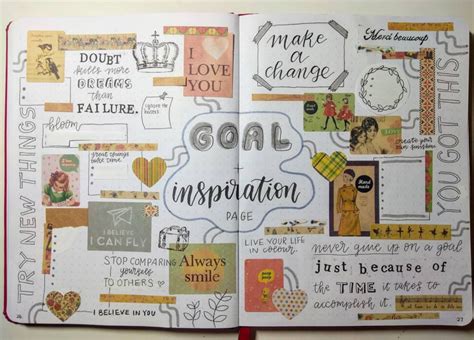 TRY NEW THINGS
DOUBT
kills more
DREAMS
than
FAILURE.
I
LOVE
YOU
ignore the
successes
bloom
Great things
take time
I BELIEVE
I CAN FLY
STOP COMPARING
YOURSELF
TO OTHERS
I BELIEVE IN YOU
Always
smile
26
GOAL
inspiration
PAGE
make
a
change
Merci beaucoup
create your
own sunshine
Hand
made
LIVE YOUR LIFE
IN COLOUR.
never give up on a goal
just because of
the TIME it takes to
accomplish it.
YOU GOT THIS
27